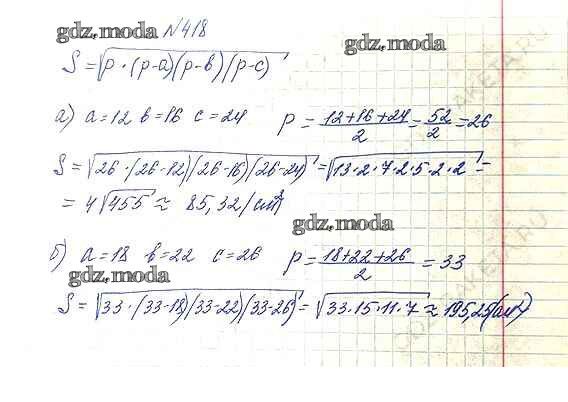 gdz.moda №418
S = √p · (p-a)(p-b)(p-c)
gdz.moda
а) a = 12 b = 16 c = 24 p = (12+16+24)/2 = 52/2 = 26
S = √26 · (26-12)(26-16)(26-24) = √13·2·7·2·5·2·2 =
= 4√455 ≈ 85,32 (см²)
gdz.moda
б) a = 18 b = 22 c = 26 p = (18+22+26)/2 = 33
gdz.moda
S = √33 · (33-18)(33-22)(33-26) = √33·15·11·7 ≈ 195,25